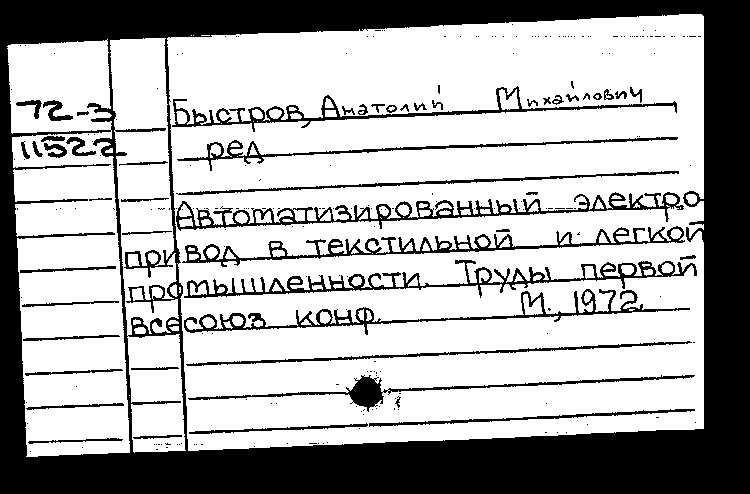 72-3
11522
Быстров, Анатолий Михайлович
ред
Автоматизированный электро-
привод в текстильной и легкой
промышленности. Труды первой
всесоюз конф. М., 1972